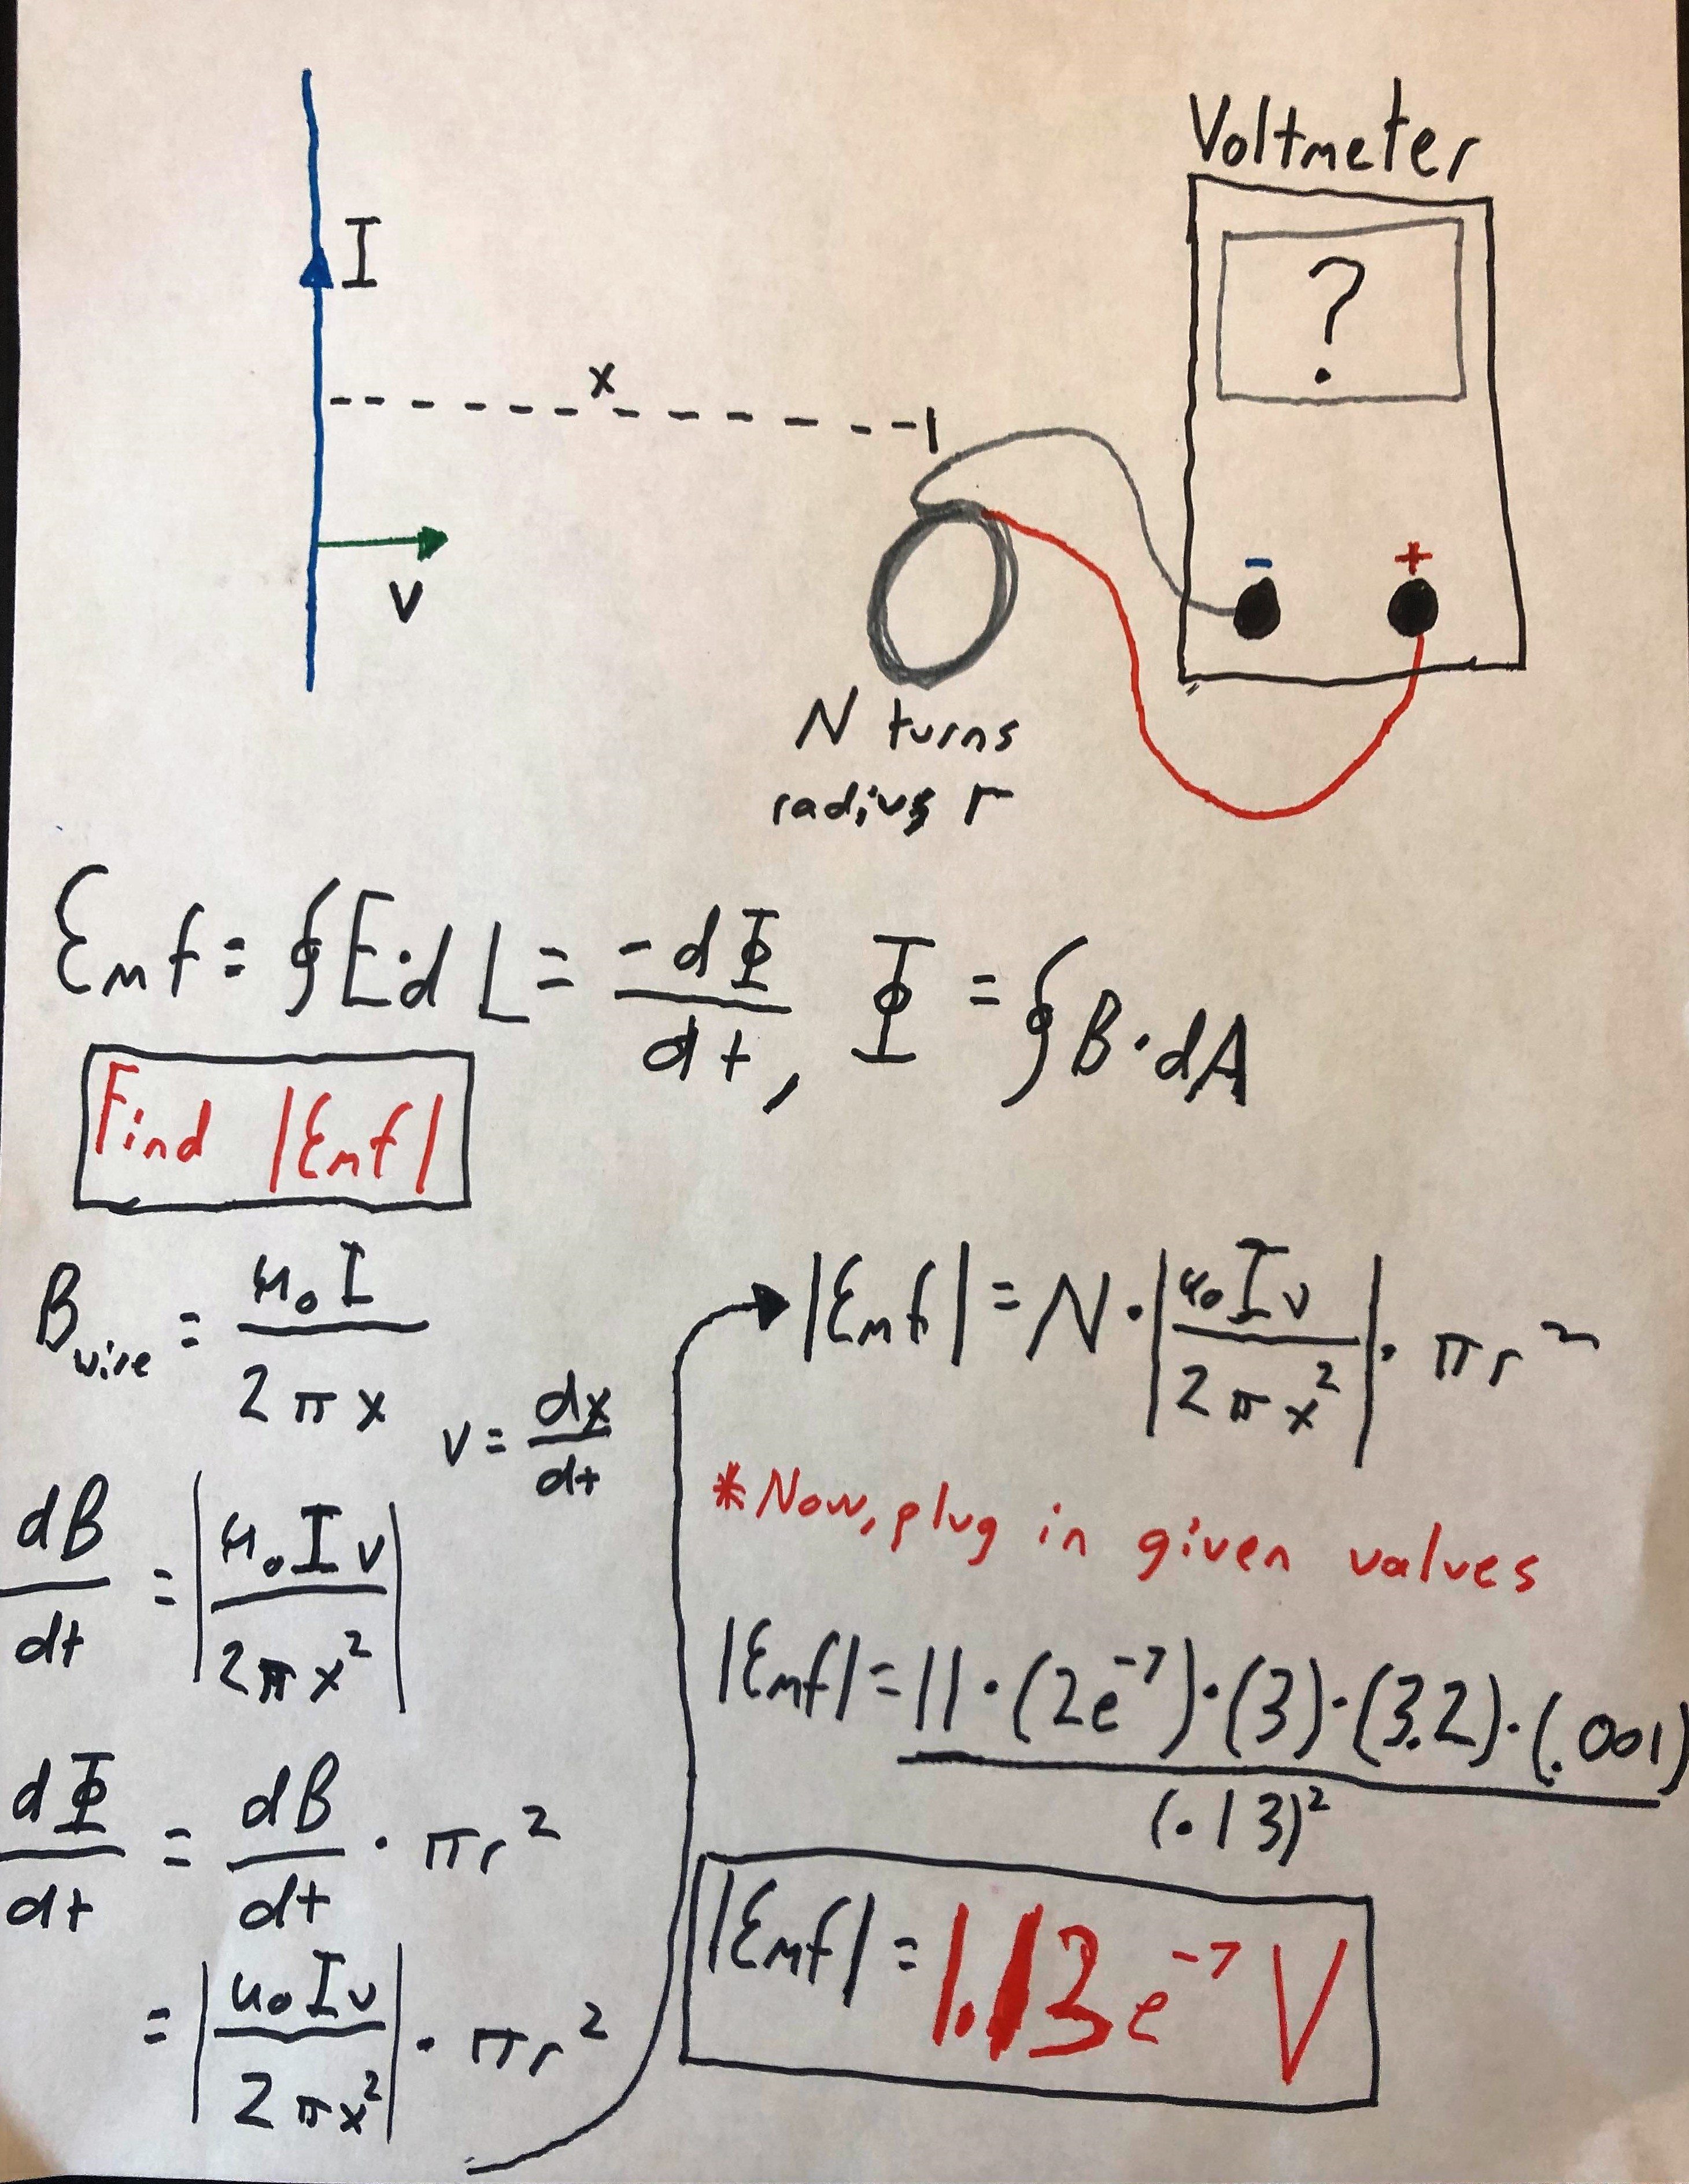 Voltmeter
I
?
x
- +
v
N turns
radius r
Emf = ∮E·dL = -dΦ/dt, Φ = ∮B·dA
Find |Emf|
B_wire = μ₀I / 2πx
v = dx/dt
dB/dt = |μ₀Iv / 2πx²|
dΦ/dt = dB/dt · πr²
= |μ₀Iv / 2πx²| · πr²
|Emf| = N · |μ₀Iv / 2πx²| · πr²
*Now, plug in given values
|Emf| = 11·(2e⁻⁷)·(3)·(3.2)·(.001) / (.13)²
|Emf| = 1.13e⁻⁷ V